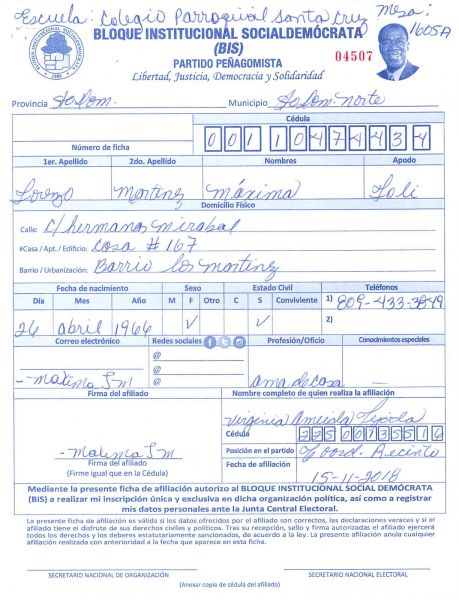 Escuela: Colegio Parroquial Santa Cruz Mesa: 1605A
BLOQUE INSTITUCIONAL SOCIALDEMÓCRATA
(BIS)
PARTIDO PEÑAGOMISTA
04507
Libertad, Justicia, Democracia y Solidaridad
Provincia Sto Dom. Municipio Sto Dom. Norte
Cédula
Número de ficha
1er. Apellido 2do. Apellido Nombres Apodo
Lorenzo Martinez Máxima Loli
Domicilio Físico
Calle: C/ hermanas mirabal
#Casa / Apt. / Edificio: Casa # 167
Barrio / Urbanización: Barrio los Martinez
Fecha de nacimiento Sexo Estado Civil Teléfonos
Día Mes Año M F Otro C S Conviviente 1) 809-433-3849
26 abril 1966 ✓ ✓ 2)
Correo electrónico Redes sociales Profesión/Oficio Conocimientos especiales
@
@
@
ama de casa
Firma del afiliado Nombre completo de quien realiza la afiliación
Virginia
Cédula
Posición en el partido
Recinto
Firma del afiliado
(Firme igual que en la Cédula)
Fecha de afiliación
15-11-2018
Mediante la presente ficha de afiliación autorizo al BLOQUE INSTITUCIONAL SOCIAL DEMÓCRATA
(BIS) a realizar mi inscripción única y exclusiva en dicha organización política, así como a registrar
mis datos personales ante la Junta Central Electoral.
La presente ficha de afiliación es válida si los datos ofrecidos por el afiliado son correctos, las declaraciones veraces y si el
afiliado tiene el disfrute de sus derechos civiles y políticos. Tras su recepción, sello y firma autorizadas el afiliado ejercerá
todos los derechos y los deberes estatutariamente sancionados, de acuerdo a la ley. La presente afiliación anula cualquier
afiliación realizada con anterioridad a la fecha que aparece en esta ficha.
SECRETARIO NACIONAL DE ORGANIZACIÓN SECRETARIO NACIONAL ELECTORAL
(Anexar copia de cédula del afiliado)